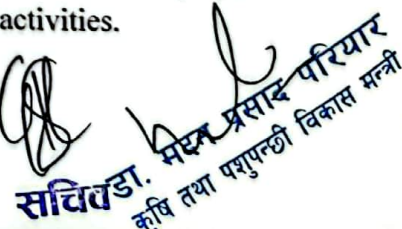 activities.
सचिव
डा. मदन प्रसाद परियार
कृषि तथा पशुपन्छी विकास मन्त्री